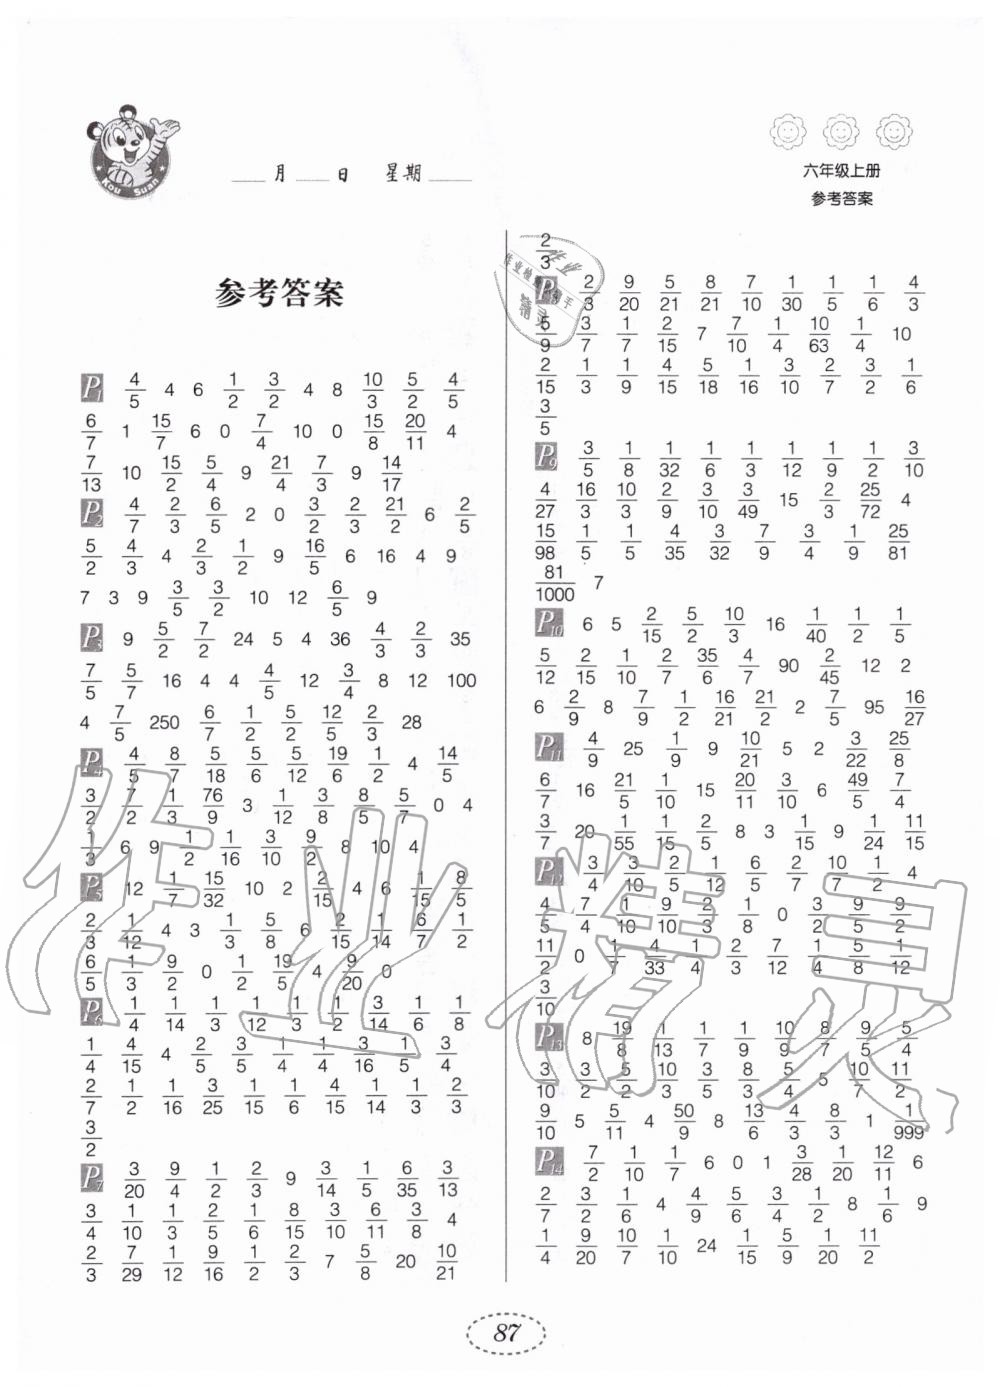 Kou Suan
月 日 星期
六年级上册
参考答案
参考答案
P1 4/5 4 6 1/2 3/2 4 8 10/3 5/2 4/5
6/7 1 15/7 6 0 7/4 10 0 15/8 20/11 4
7/13 10 15/2 5/4 9 21/4 7/3 9 14/17
P2 4/7 2/3 6/5 2 0 3/2 2/3 21/2 6 2/5
5/2 4/3 4 2/3 1/2 9 16/5 6 16 4 9
7 3 9 3/5 3/2 10 12 6/5 9
P3 9 5/2 7/2 24 5 4 36 4/3 2/3 35
7/5 5/7 16 4 4 4/5 12 3/4 8 12 100
4 7/5 250 6/7 1/2 5/2 12/5 2/3 28
P4 4/5 8/7 5/18 5/6 5/12 19/6 1/2 4 14/5
3/2 7/2 1/3 76/9 3 1/12 3/8 8/5 5/7 0 4
1/3 6 9 1/2 1/16 3/10 9/2 8 10 4
P5 12 1/7 15/32 10 2 2/15 4 6 1/15 8/5
2/3 1/12 4 3 1/3 5/8 6 2/15 1/14 6/7 1/2
6/5 1/3 9/2 0 1/2 19/5 4 9/20 0
P6 1/4 1/14 1/3 1/12 1/3 1/2 3/14 1/6 1/8
1/4 4/15 4 2/5 3/5 1/4 1/4 3/16 1/5 3/4
2/7 1/2 1/16 3/25 1/15 1/6 4/15 1/14 1/3 2/3
3/2
P7 3/20 9/4 1/2 2/3 9 3/14 1/5 6/35 3/13
3/4 1/10 1/3 2/5 1/6 8/15 3/10 6/11 3/8 4
2/3 7/29 1/12 9/16 1/2 2/3 7 5/8 20 10/21
2/3
P8 2/3 9/20 5/21 8/21 7/10 1/30 1/5 1/6 4/3
5/9 3/7 1/7 2/15 7 7/10 1/4 10/63 1/4 10
2/15 1/3 1/9 4/15 5/18 1/16 3/10 2/7 3/2 1/6
3/5
P9 3/5 1/8 1/32 1/6 1/3 1/12 1/9 1/2 3/10
4/27 16/3 10/3 2/9 3/10 3/49 15 2/3 25/72 4
15/98 1/5 1/5 4/35 3/32 7/9 3/4 1/9 25/81
81/1000 7
P10 6 5 2/15 5/2 10/3 16 1/40 1/2 1/5
5/12 2/15 1/10 2/7 35/6 4/7 90 2/45 12 2
6 2/9 8 7/9 1/2 16/21 21/2 2 7/5 95 16/27
P11 4/9 25 1/9 9 10/21 5 2 3/22 25/8
6/7 16 21/5 1/10 15 20/11 3/10 6 49/5 7/4
3/7 20 1/55 1/15 2/5 8 3 1/15 9 1/24 11/15
P12 3/4 3/10 2/5 1/12 6/5 2/7 10/7 1/2 4
4/5 7/4 1/10 9/10 2/3 1/8 0 3/2 9/5 9/2
11/2 0 1/7 4/33 1/4 2/3 7/12 1/4 5/8 1/12
3/10
P13 8 19/8 1/13 1/7 1/9 10/9 8/7 9/5 5/4
3/10 3/2 5/2 10/3 3/5 8/3 5/4 5 10/7 11/2
9/10 5 5/11 4 50/9 8 13/6 4/3 8/3 1 1/999
P14 7/2 1/10 1/7 6 0 1 3/28 1/20 12/11 6
2/7 3/2 1/6 4 4/9 5/6 3/4 1/2 8 1/6 9
1/4 9/20 10/7 1/10 24 1/15 5/9 1/20 11/2
87